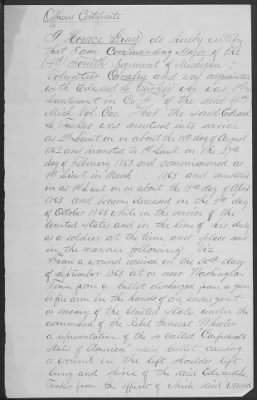 Officers Certificate
I Horace Gray do hereby certify
that I am Commanding Major of the
4th Fourth Regiment of Michigan
Volunteer Cavalry and was acquainted
with Edward L. Tucker who was 1st
Lieutenant in Co. of the said 4th
Mich. Vol. Cav. That the said Edward
L. Tucker was mustered into service
as 2d Lieut on or about the 13th day of August
1862 and promoted to 1st Lieut. on the
day of February 1863 and commissioned as
1st Lieut. in March 1863 and mustered
in as 1st Lieut on or about the 13th day of April
1863 and became deceased on the day
of October 1863 while in the service of the
United States and in the line of his duty
as a soldier at the time and place and
in the manner following viz
From a wound received on the 30th day
of September 1863 at or near Washington
Tenn from a bullet discharged from a gun
or fire arm in the hands of an insurgent
or enemy of the United States under the
command of the Rebel General Wheeler
a representative of the so called Confederate
States of America said bullet causing
a wound in the left shoulder left
lung and spine of the said Edward L.
Tucker from the effect of which said wound